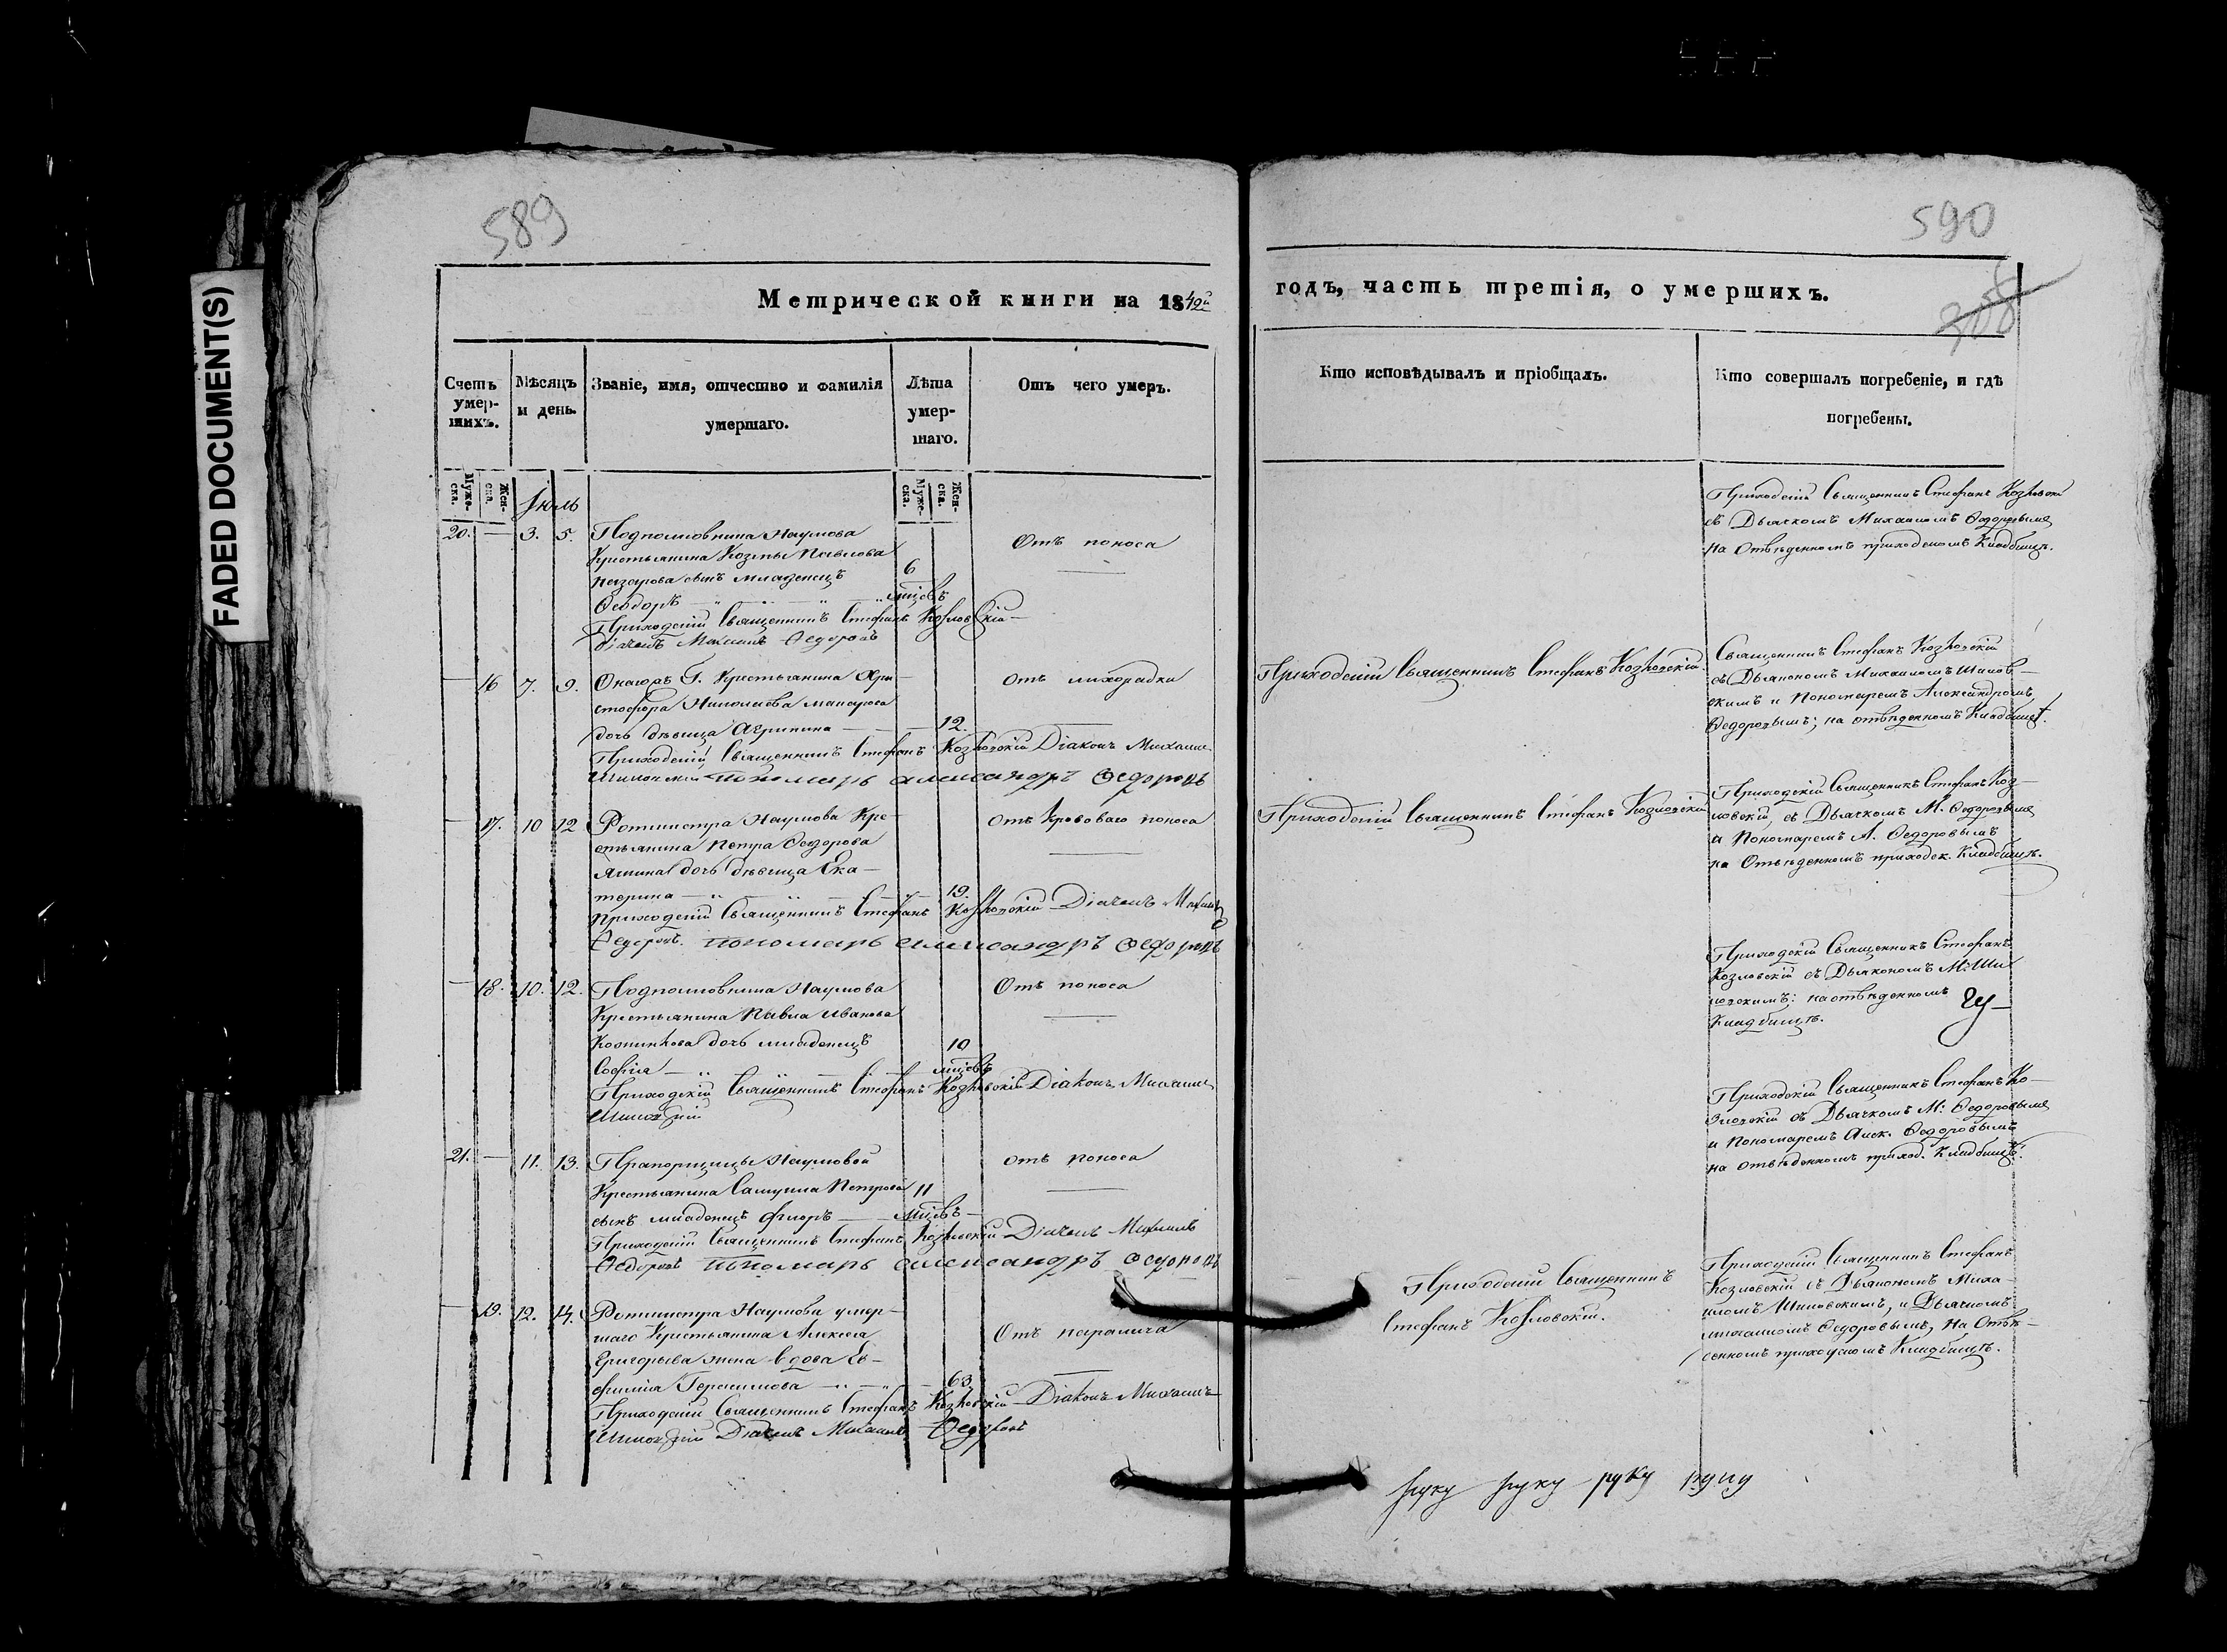 FADED DOCUMENT(S)
589
590
Метрической книги на 1842й
годъ, часть третія, о умершихъ.
308
Счетъ умер-шихъ.
Мѣсяцъ и день.
Званіе, имя, отчество и фамилія умершаго.
Лѣта умер-шаго.
Отъ чего умеръ.
Кто исповѣдывалъ и пріобщалъ.
Кто совершалъ погребеніе, и гдѣ погребены.
Муже-ска.
Жен-ска.
Іюль
Муже-ска.
Жен-ска.
20. — 3. 5. Подполковника Наумова
Крестьянина Козмы Павлова
сынъ младенецъ 6
Ѳеодоръ мцовъ
Отъ поноса
Приходскій Священникъ Стефанъ Козловскій
Дьячекъ Михаилъ Ѳедоровъ
Приходскій Священникъ Стефанъ Козловскій
съ Дьячкомъ Михаиломъ Ѳедоровымъ
на отвѣденномъ приходскомъ Кладбищѣ.
— 16 7. 9. Крестьянина Хри-
стофора Николаева
дочь дѣвица Агрипина 12.
Отъ лихорадки
Приходскій Священникъ Стефанъ Козловскій Діаконъ Михаилъ
Пономарь Александръ Ѳедоровъ
Приходскій Священникъ Стефанъ Козловскій.
Священникъ Стефанъ Козловскій
съ Дьякономъ Михаиломъ Шилов-
скимъ и Пономаремъ Александромъ
Ѳедоровымъ; на отвѣденномъ Кладбищѣ.
— 17. 10 12 Ротмистра Наумова Кре-
стьянина Петра Ѳедорова
дочь дѣвица Ека-
терина 19.
Отъ Кроваваго поноса
Приходскій Священникъ Стефанъ Козловскій Діячекъ Михаилъ
Ѳедоровъ. пономарь александръ Ѳедоровъ
Приходскій Священникъ Стефанъ Козловскій
Приходскій Священникъ Стефанъ Коз-
ловскій, съ Дьячкомъ М. Ѳедоровымъ
и Пономаремъ А. Ѳедоровымъ
на Отвѣденномъ приходск. Кладбищѣ.
— 18. 10. 12. Подполковника Наумова
Крестьянина Павла Иванова
дочь младенецъ 10
Софія мцовъ
Отъ поноса
Приходскій Священникъ Стефанъ Козловскій Діаконъ Михаилъ
Шиловскій
Приходскій Священникъ Стефанъ
Козловскій съ Дьякономъ М: Ши
ловскимъ: на отвѣденномъ
Кладбищѣ.
21. — 11. 13. Прапорщицы Наумовой
Крестьянина Самуила Петрова 11
сынъ младенецъ Флоръ мцовъ
отъ поноса
Приходскій Священникъ Стефанъ Козловскій Діячекъ Михаилъ
Ѳедоровъ пономарь александръ Ѳедоровъ
Приходскій Священникъ Стефанъ Ко-
зловскій съ Дьячкомъ М: Ѳедоровымъ
и Пономаремъ Алек. Ѳедоровымъ
на отвѣденномъ приход. Кладбищѣ.
— 19. 12. 14. Ротмистра Наумова умер-
шаго Крестьянина Алексея
Григорьева жена вдова Ев-
фимія Герасимова 63.
Отъ паралича
Приходскій Священникъ Стефанъ Козловскій Діаконъ Михаилъ
Шиловскій Діячекъ Михаилъ Ѳедоровъ
Приходскій Священникъ
Стефанъ Козловскій.
Приходскій Священникъ Стефанъ
Козловскій съ Дьякономъ Миха-
иломъ Шиловскимъ, и Дьячкомъ
михаиломъ Ѳедоровымъ, На Отвѣ-
денномъ приходскомъ Кладбищѣ.
руку руку руку руку